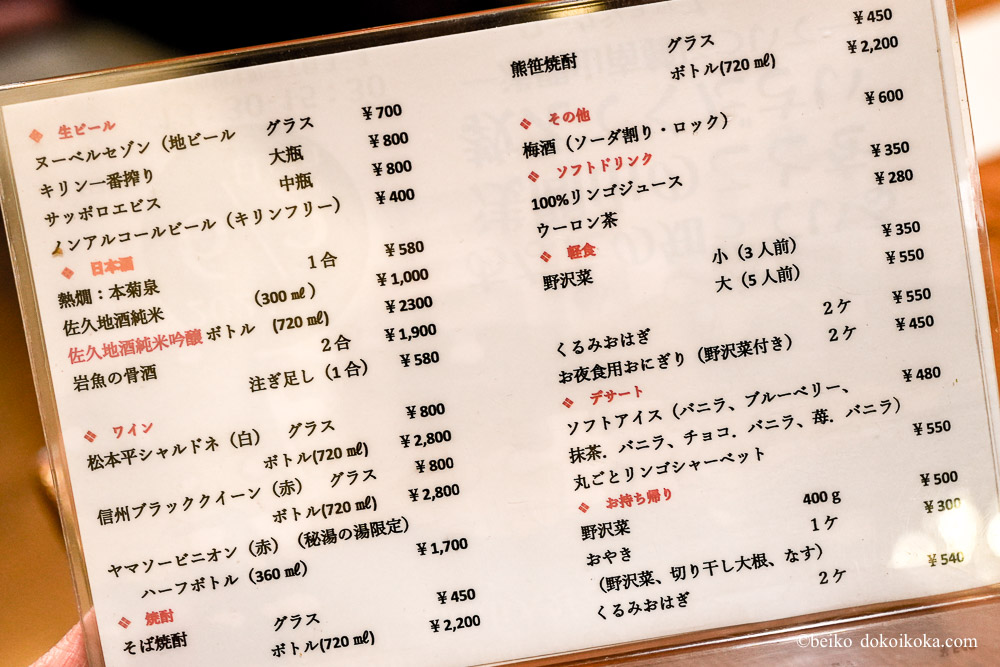 ❖ 生ビール
ヌーベルセゾン（地ビール グラス ￥700
キリン一番搾り 大瓶 ￥800
サッポロエビス 中瓶 ￥800
ノンアルコールビール（キリンフリー） ￥400
❖ 日本酒
熱燗：本菊泉 1合 ￥580
佐久地酒純米 （300㎖） ￥1,000
佐久地酒純米吟醸ボトル (720㎖) ￥2300
岩魚の骨酒 2合 ￥1,900
注ぎ足し（1合） ￥580
❖ ワイン
松本平シャルドネ（白） グラス ￥800
ボトル(720㎖) ￥2,800
信州ブラッククイーン（赤） グラス ￥800
ボトル(720㎖) ￥2,800
ヤマソービニオン（赤）（秘湯の湯限定）
ハーフボトル（360㎖） ￥1,700
❖ 焼酎
そば焼酎 グラス ￥450
ボトル(720㎖) ￥2,200
熊笹焼酎 グラス ￥450
ボトル(720㎖) ￥2,200
❖ その他
梅酒（ソーダ割り・ロック） ￥600
❖ ソフトドリンク
100%リンゴジュース ￥350
ウーロン茶 ￥280
❖ 軽食
野沢菜 小（3人前） ￥350
大（5人前） ￥550
くるみおはぎ 2ケ ￥550
お夜食用おにぎり（野沢菜付き） 2ケ ￥450
❖ デザート
ソフトアイス（バニラ、ブルーベリー、 ￥480
抹茶．バニラ、チョコ．バニラ、苺．バニラ）
丸ごとリンゴシャーベット ￥550
❖ お持ち帰り
野沢菜 400g ￥500
おやき 1ケ ￥300
（野沢菜、切り干し大根、なす）
くるみおはぎ 2ケ ￥540
©beiko dokoikoka.com